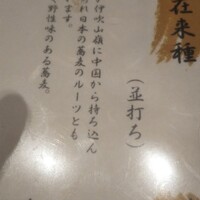 在来種
(並打ち)
伊吹山嶺に中国から持ち込ん
れ日本の蕎麦のルーツとも
ます。
野性味のある蕎麦。